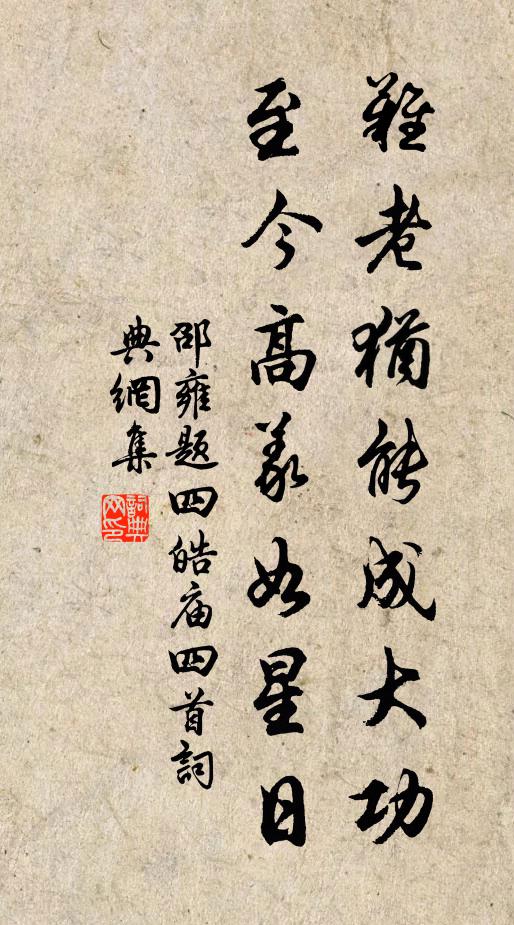 難老猶能成大功
至今高義如星日
邵雍題四皓庙四首詞
典網集
詞典网印